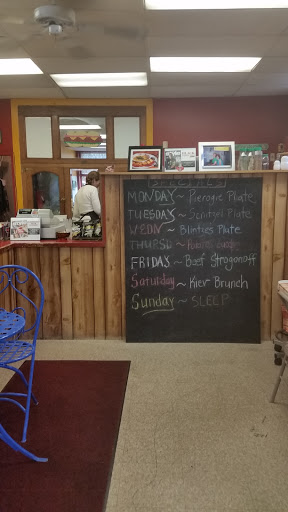 SPECIALS
MONDAY ~ Pierogie Plate
TUESDAY ~ Scnitzel Plate
WEDN ~ Blinties Plate
THURSD ~
FRIDAY ~ Beef Stroganoff
Saturday ~ Kiev Brunch
Sunday ~ SLEEP